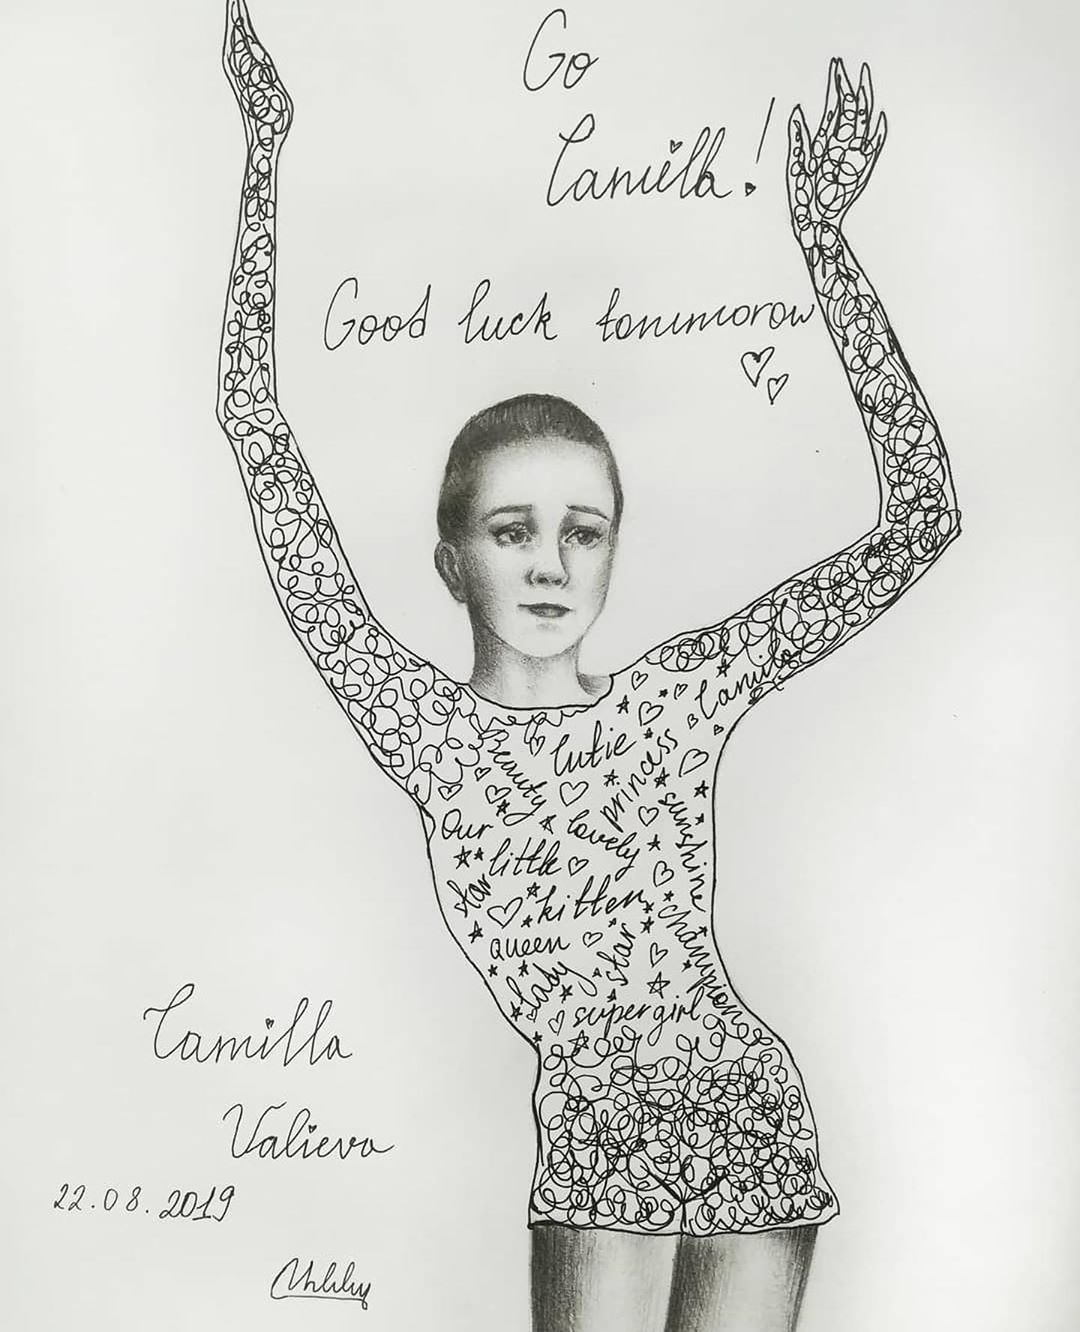 Go
Camilla!
Good luck tommorow
Camila
Cutie
princess
Beauty
sunshine
Our
lovely
little
star
kitten
queen
star
champion
lady
supergirl
Camilla
Valieva
22.08.2019